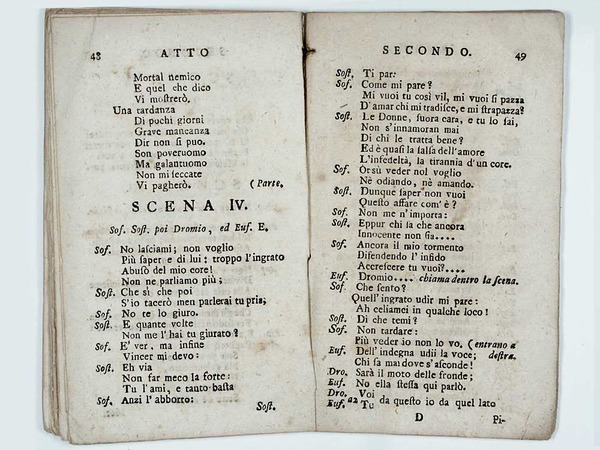 48 ATTO
Mortal nemico
E quel che dico
Vi mostrerò.
Una tardanza
Di pochi giorni
Grave mancanza
Dir non si puo.
Son poveruomo
Ma galantuomo
Non mi seccate
Vi pagherò. (Parte.
SCENA IV.
Sof. Sost. poi Dromio, ed Euf. E.
Sof. No lasciami; non voglio
Più saper e di lui: troppo l'ingrato
Abusò del mio core!
Non ne parliamo più;
Sost. Che sì che poi
S'io tacerò men parlerai tu pria;
Sof. No te lo giuro.
Sost. E quante volte
Non me l'hai tu giurato?
Sof. E' ver, ma infine
Vincer mi devo:
Sost. Eh via
Non far meco la forte:
Tu l'ami, e tanto basta
Sof. Anzi l'abborro:
Sost.
SECONDO. 49
Sost. Ti par:
Sof. Come mi pare?
Mi vuoi tu così vil, mi vuoi sì pazza
D'amar chi mi tradisce, e mi strapazza?
Sost. Le Donne, suora cara, e tu lo sai,
Non s'innamoran mai
Di chi le tratta bene?
Ed è quasi la salsa dell'amore
L'infedeltà, la tirannia d'un core.
Sof. Orsù veder nol voglio
Nè odiando, nè amando.
Sost. Dunque saper non vuoi
Questo affare com'è?
Sof. Non me n'importa:
Sost. Eppur chi sa che ancora
Innocente non sia....
Sof. Ancora il mio tormento
Difendendo l'infido
Accrescere tu vuoi?....
Euf. Dromio.... chiama dentro la scena.
Sof. Che sento?
Quell'ingrato udir mi pare:
Ah celiamei in qualche loco!
Sost. Di che temi?
Sof. Non tardare:
Più veder io non lo vo. (entrano a
Euf. Dell'indegna udii la voce; destra.
Chi sa mai dove s'asconde!
Dro. Sarà il moto delle fronde;
Euf. No ella stessa quì parlò.
Dro. Voi
Euf. a2 Tu da questo io da quel lato
D Pi-